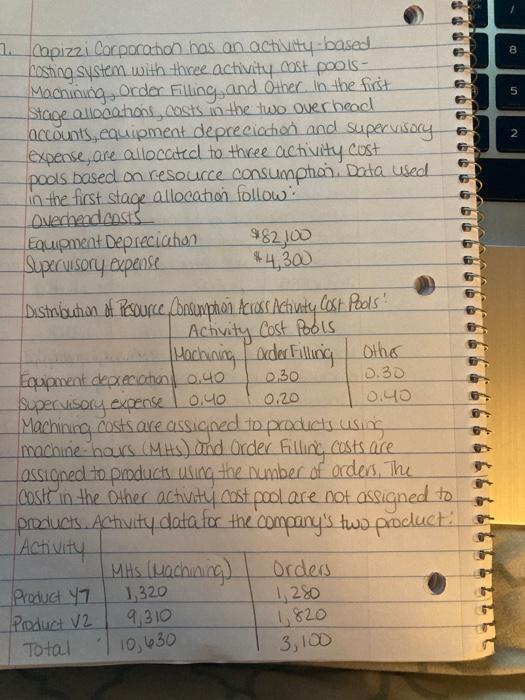 7. Capizzi Corporation has an activity-based
costing system with three activity cost pools -
Machining, Order Filling, and Other. In the first
stage allocations, costs in the two overhead
accounts, equipment depreciation and supervisory
expense, are allocated to three activity cost
pools based on resource consumption. Data used
in the first stage allocation follow:
Overhead costs
Equipment Depreciation $82,100
Supervisory expense $4,300
Distribution of Resource Consumption Across Activity Cost Pools:
Activity Cost Pools
Machining Order Filling Other
Equipment depreciation 0.40 0.30 0.30
Supervisory expense 0.40 0.20 0.40
Machining costs are assigned to products using
machine-hours (MHs) and Order Filling costs are
assigned to products using the number of orders. The
costs in the Other activity cost pool are not assigned to
products. Activity data for the company's two product:
Activity
MHs (Machining) Orders
Product Y7 1,320 1,280
Product V2 9,310 1,820
Total 10,630 3,100
8
5
2